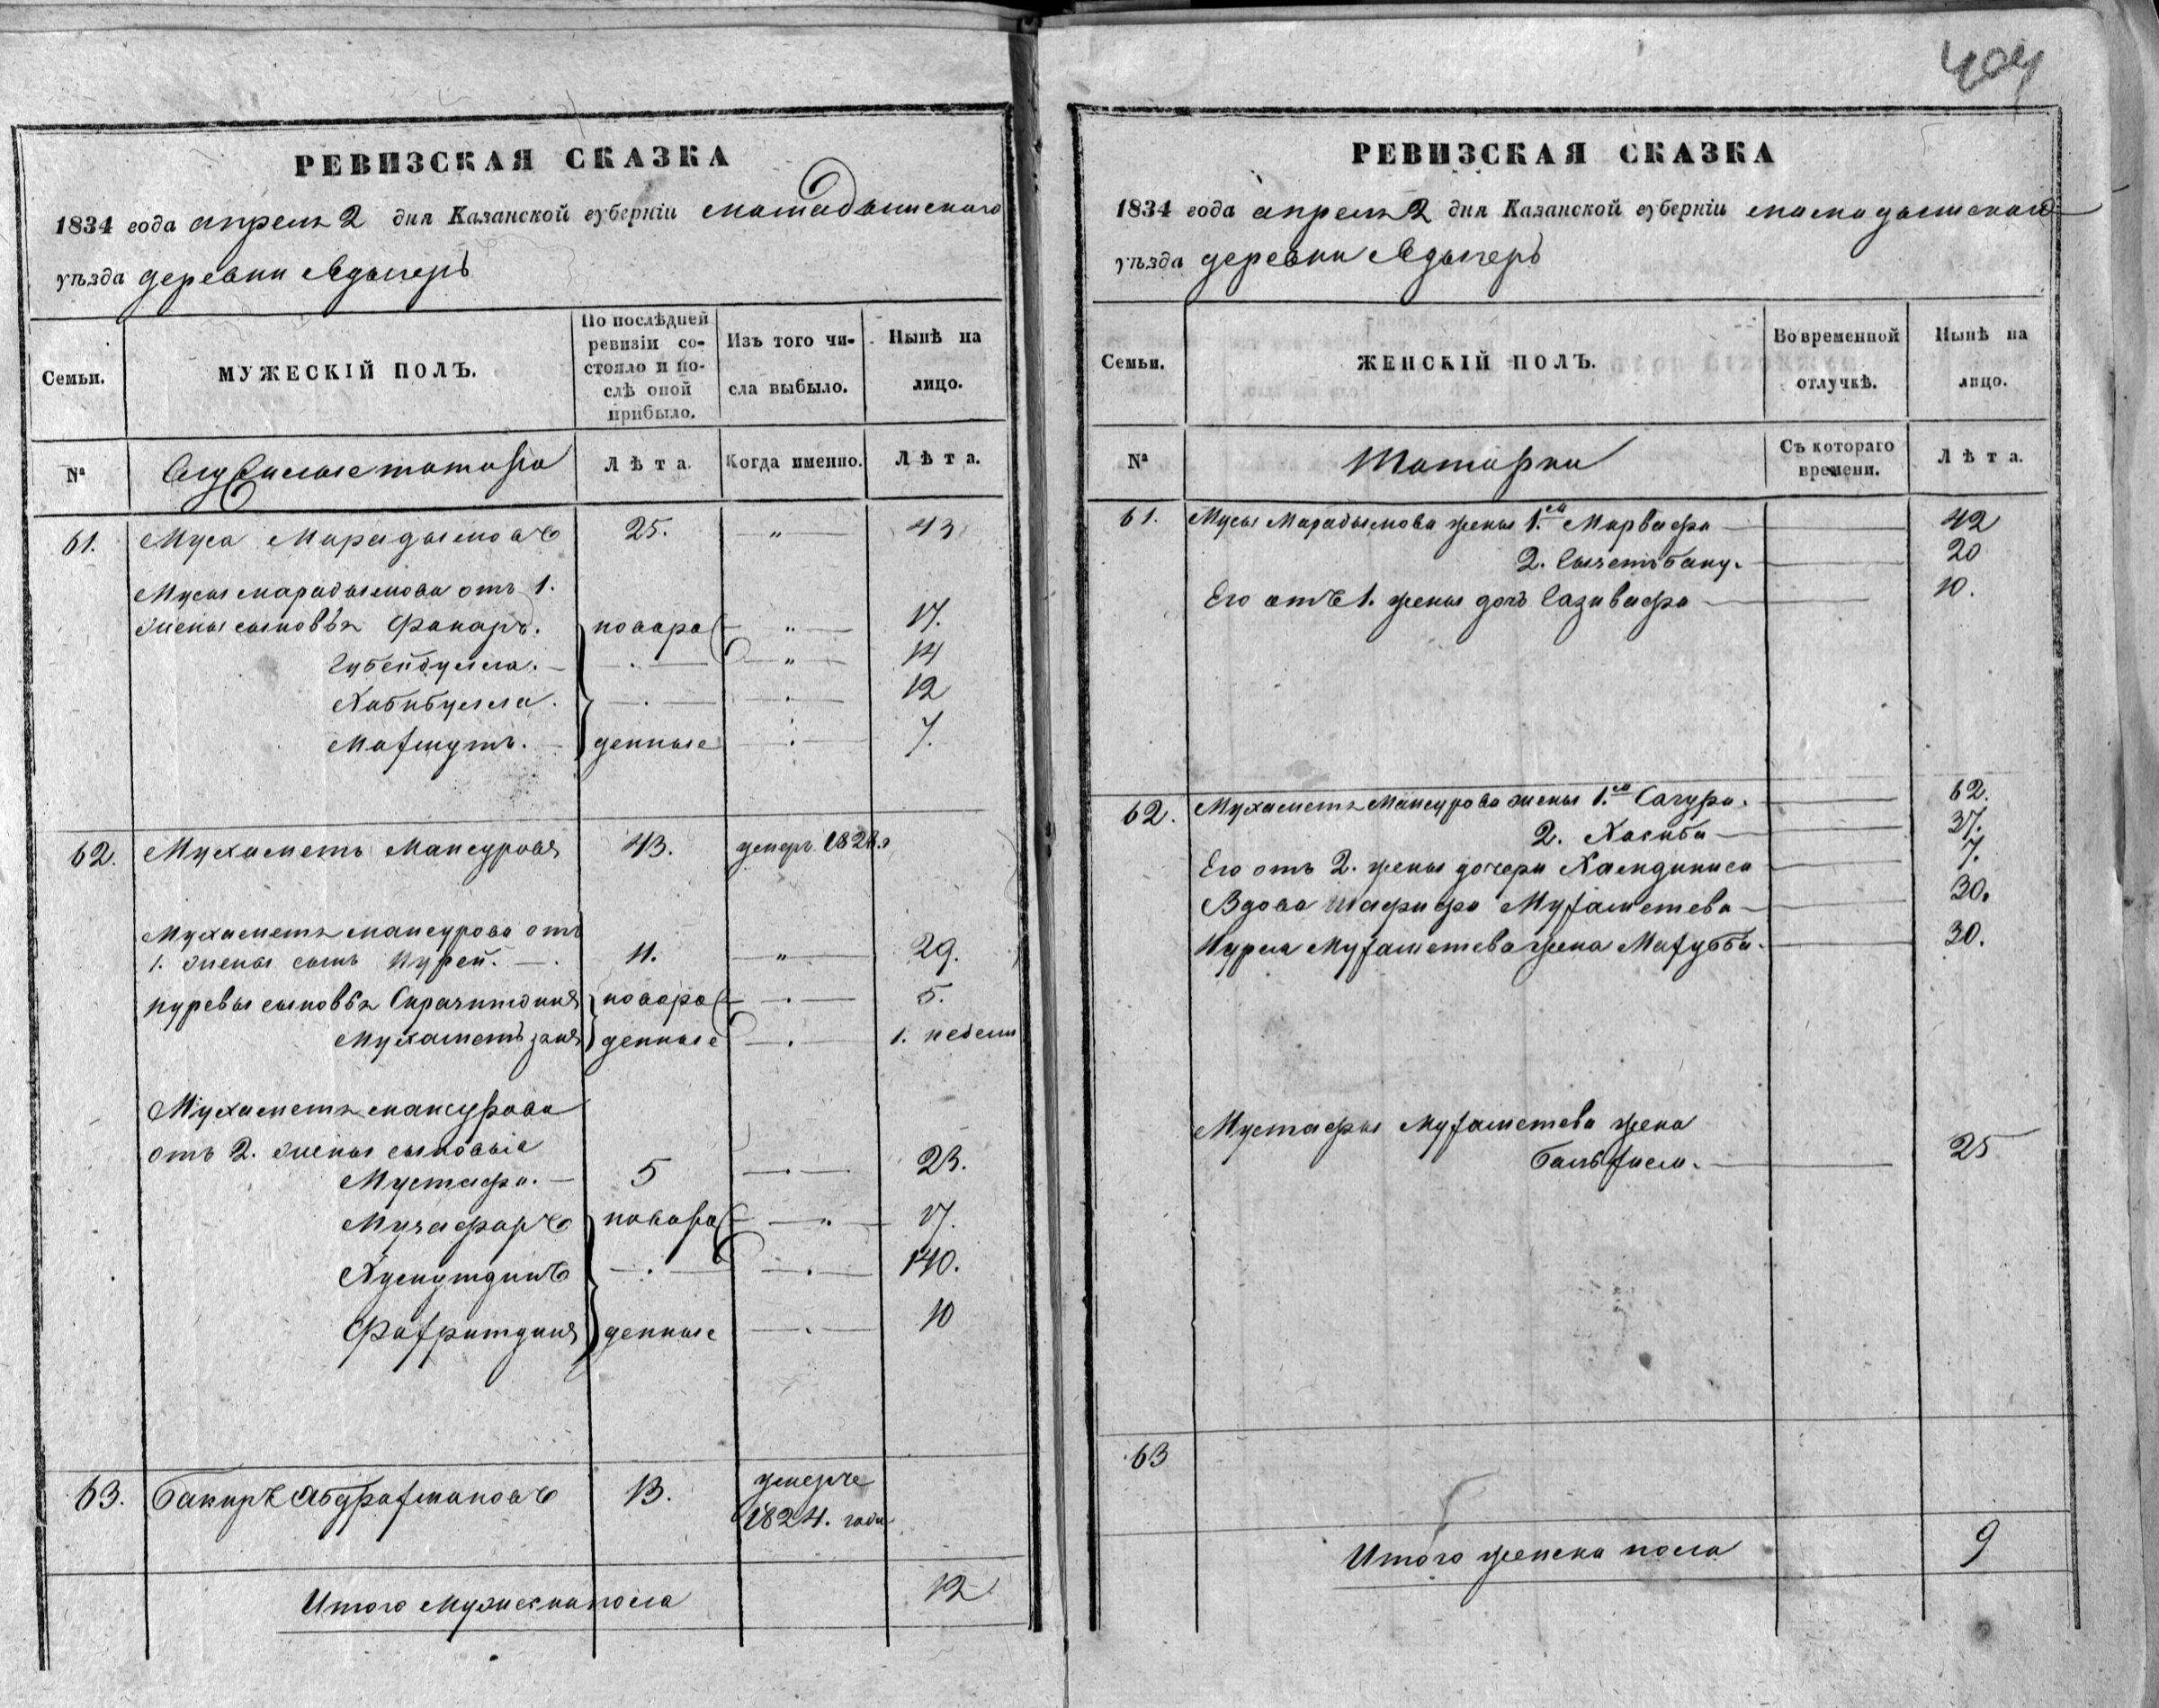 404
РЕВИЗСКАЯ СКАЗКА
1834 года апреля 2 дня Казанской губерніи мамадышскаго
уѣзда деревни Ядыгерь
Семьи.
МУЖЕСКІЙ ПОЛЪ.
По послѣдней ревизіи состояло и послѣ оной прибыло.
Изъ того числа выбыло.
Нынѣ на лицо.
№
татара
Лѣта.
Когда именно.
Лѣта.
61. Муса Марадымовъ 25. " 43
Мусы марадымова отъ 1.
жены сыновья Фахаръ. новоро " 17.
Губейдулла. " 14
Хабибулла. 12
Махмутъ. жденные 7.
62. Мухаметъ Мансуровъ 43. умеръ 1828.
Мухаметя мансурова отъ
1. жены сынъ Нурей. 11. " 29.
нуревы сыновья новоро 5.
Мухаметъзянъ жденные 1. недели
Мухаметя мансурова
отъ 2. жены сыновья
Мустафа. 5 23.
Музафаръ новоро 17.
Хуснутдинъ 140.
Фахритдинъ жденные 10
63. Бакиръ Абдрахмановъ 13. умерче
1824. года
Итого мужеска пола 12
РЕВИЗСКАЯ СКАЗКА
1834 года апреля 2 дня Казанской губерніи мамадышскаго
уѣзда деревни Ядыгерь
Семьи.
ЖЕНСКІЙ ПОЛЪ.
Во временной отлучкѣ.
Нынѣ на лицо.
№
Татарки
Съ котораго времени.
Лѣта.
61. Мусы Марадымова жены 1.ая Марвафа 42
2. 20
Его отъ 1. жены дочь Сазивафа 10.
62. Мухаметя Мансурова жены 1.ая Сагура. 62.
2. Хасиба 37.
Его отъ 2. жены дочери Хамдиниса 7.
Вдова Шафифа Мухаметева 30.
Нурея Мухаметева жена Махубба. 30.
Мустафы Мухаметева жена
25
63
Итого женска пола 9